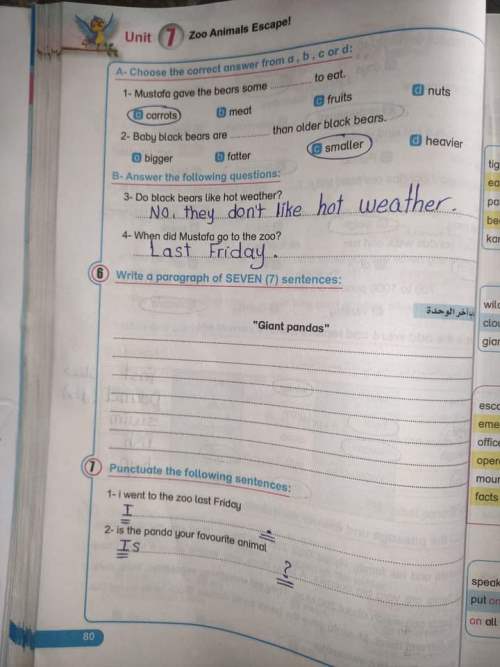 Unit 7 Zoo Animals Escape!
A- Choose the correct answer from a , b , c or d:
1- Mustafa gave the bears some .............. to eat.
a carrots b meat c fruits d nuts
2- Baby black bears are .............. than older black bears.
a bigger b fatter c smaller d heavier
B- Answer the following questions:
3- Do black bears like hot weather?
No, they don't like hot weather.
4- When did Mustafa go to the zoo?
Last Friday.
6 Write a paragraph of SEVEN (7) sentences:
"Giant pandas"
7 Punctuate the following sentences:
1- i went to the zoo last Friday
I .
2- is the panda your favourite animal
Is ?
80
wil
clo
gia
esc
eme
office
oper
mour
facts
speak
put on
on all